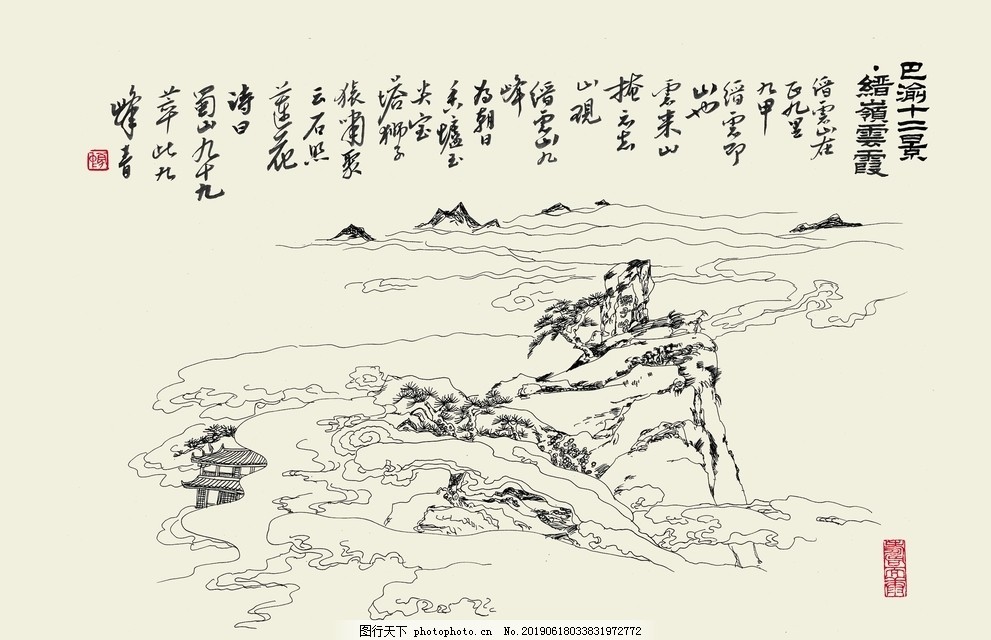 巴渝十二景
·縉嶺雲霞
缙雲山在
正九里
九甲
缙雲即
山也
雲来山
掩云去
山現
缙雲山九
峰
为朝日
香爐玉
尖宝
塔狮子
猿啸聚
云石照
莲花
诗曰
蜀山九十九
萃此九
峰青
狮子峰
图行天下 photophoto.cn No.20190618033831972772